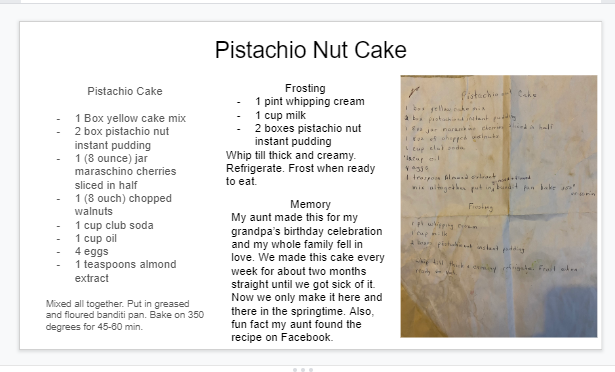 Pistachio Nut Cake
Pistachio Cake
- 1 Box yellow cake mix
- 2 box pistachio nut
instant pudding
- 1 (8 ounce) jar
maraschino cherries
sliced in half
- 1 (8 ouch) chopped
walnuts
- 1 cup club soda
- 1 cup oil
- 4 eggs
- 1 teaspoons almond
extract
Mixed all together. Put in greased
and floured banditi pan. Bake on 350
degrees for 45-60 min.
Frosting
- 1 pint whipping cream
- 1 cup milk
- 2 boxes pistachio nut
instant pudding
Whip till thick and creamy.
Refrigerate. Frost when ready
to eat.
Memory
My aunt made this for my
grandpa's birthday celebration
and my whole family fell in
love. We made this cake every
week for about two months
straight until we got sick of it.
Now we only make it here and
there in the springtime. Also,
fun fact my aunt found the
recipe on Facebook.
Pistachio nut Cake
1 box yellow cake mix
instant pudding
jar maraschino cherries sliced in half
1 cup club soda
cup oil
4 eggs
1 teaspoon almond extract
mix altogether put in bandit pan bake 350°
Frosting
1 pt whipping cream
1 cup milk
instant pudding
whip till thick + creamy